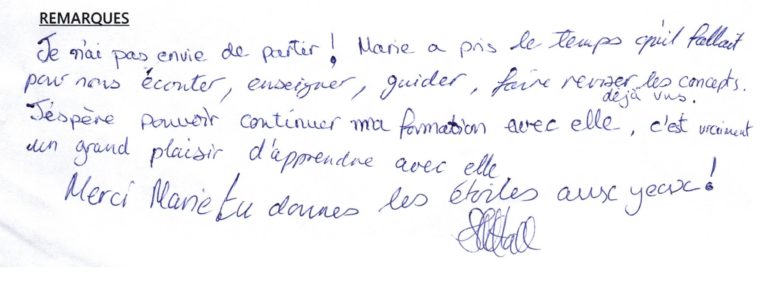 REMARQUES
Je n'ai pas envie de partir ! Marie a pris le temps qu'il fallait
pour nous écouter, enseigner, guider, faire reviser les concepts.
déjà vus.
J'éspère pouvoir continuer ma formation avec elle, c'est vraiment
un grand plaisir d'apprendre avec elle
Merci Marie ! tu donnes les étoiles aux yeux !